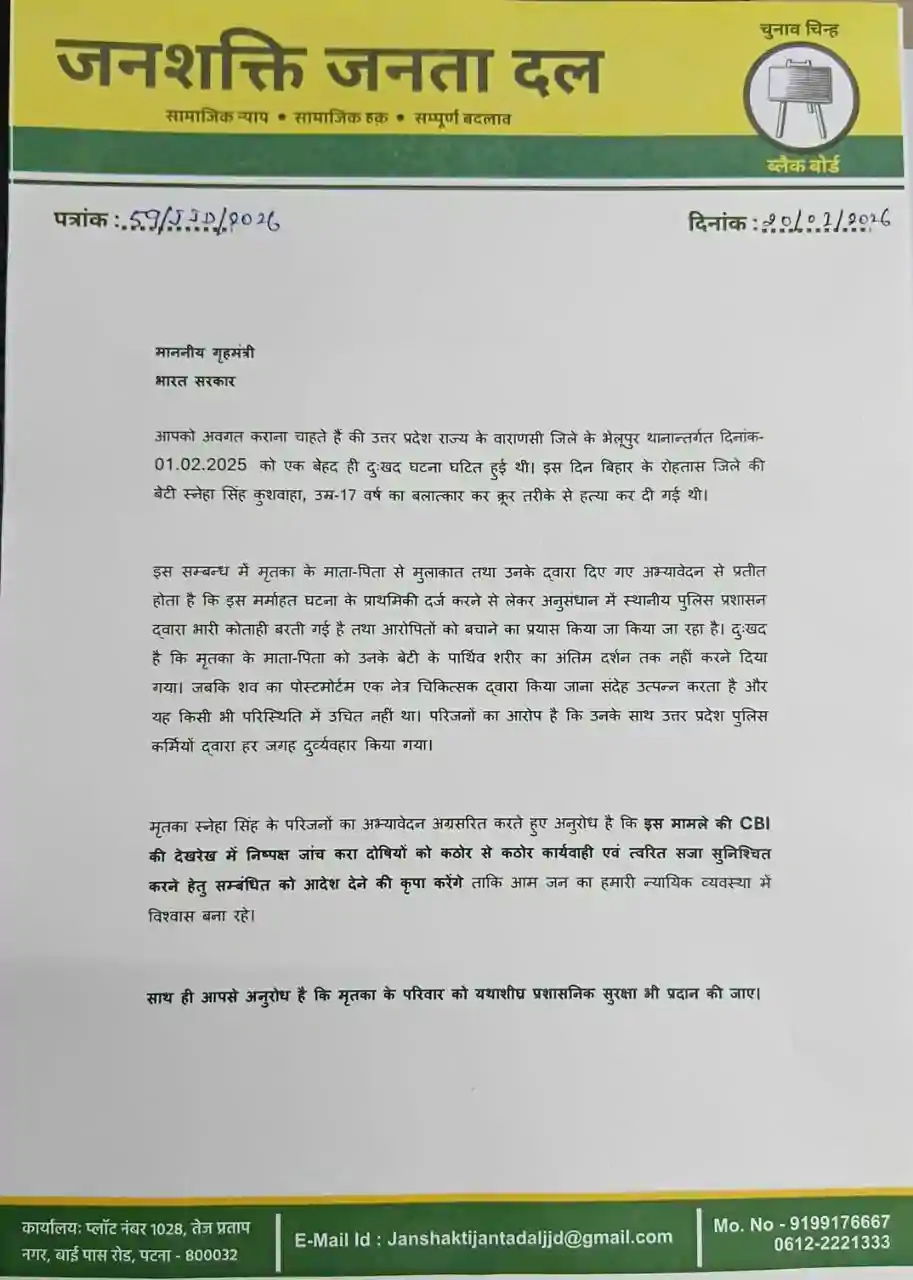 जनशक्ति जनता दल
सामाजिक न्याय • सामाजिक हक़ • सम्पूर्ण बदलाव
चुनाव चिन्ह
ब्लैक बोर्ड
पत्रांक : 59/JJD/2026
दिनांक : 20/02/2026
माननीय गृहमंत्री
भारत सरकार
आपको अवगत कराना चाहते हैं की उत्तर प्रदेश राज्य के वाराणसी जिले के भेलूपुर थानान्तर्गत दिनांक-
01.02.2025 को एक बेहद ही दुःखद घटना घटित हुई थी। इस दिन बिहार के रोहतास जिले की
बेटी स्नेहा सिंह कुशवाहा, उम्र-17 वर्ष का बलात्कार कर क्रूर तरीके से हत्या कर दी गई थी।
इस सम्बन्ध में मृतका के माता-पिता से मुलाकात तथा उनके द्वारा दिए गए अभ्यावेदन से प्रतीत
होता है कि इस मर्माहत घटना के प्राथमिकी दर्ज करने से लेकर अनुसंधान में स्थानीय पुलिस प्रशासन
द्वारा भारी कोताही बरती गई है तथा आरोपितों को बचाने का प्रयास किया जा किया जा रहा है। दुःखद
है कि मृतका के माता-पिता को उनके बेटी के पार्थिव शरीर का अंतिम दर्शन तक नहीं करने दिया
गया। जबकि शव का पोस्टमोर्टम एक नेत्र चिकित्सक द्वारा किया जाना संदेह उत्पन्न करता है और
यह किसी भी परिस्थिति में उचित नहीं था। परिजनों का आरोप है कि उनके साथ उत्तर प्रदेश पुलिस
कर्मियों द्वारा हर जगह दुर्व्यवहार किया गया।
मृतका स्नेहा सिंह के परिजनों का अभ्यावेदन अग्रसरित करते हुए अनुरोध है कि इस मामले की CBI
की देखरेख में निष्पक्ष जांच करा दोषियों को कठोर से कठोर कार्यवाही एवं त्वरित सजा सुनिश्चित
करने हेतु सम्बंधित को आदेश देने की कृपा करेंगे ताकि आम जन का हमारी न्यायिक व्यवस्था में
विश्वास बना रहे।
साथ ही आपसे अनुरोध है कि मृतका के परिवार को यथाशीघ्र प्रशासनिक सुरक्षा भी प्रदान की जाए।
कार्यालयः प्लॉट नंबर 1028, तेज प्रताप
नगर, बाई पास रोड, पटना - 800032
E-Mail Id : Janshaktijantadaljjd@gmail.com
Mo. No - 9199176667
0612-2221333